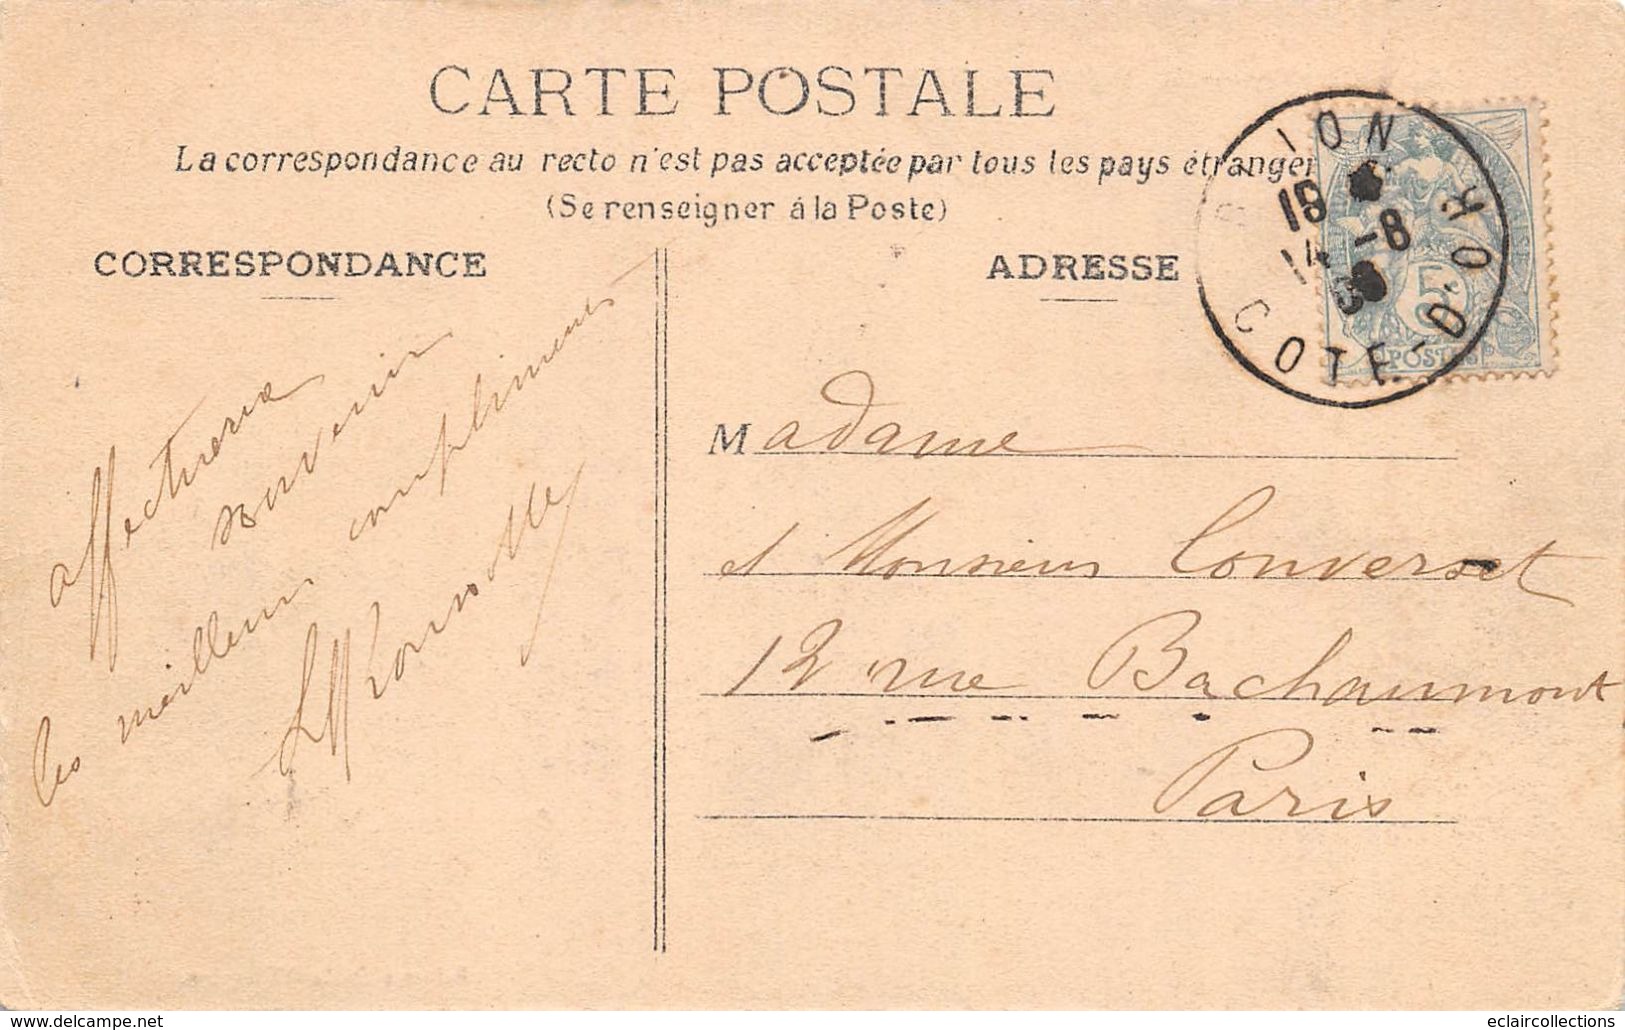 CARTE POSTALE
La correspondance au recto n'est pas acceptée par tous les pays étranger
(Se renseigner à la Poste)
CORRESPONDANCE
ADRESSE
IJON
18
14 -8
COTE-D'OR
5
POSTES
affectueux
souvenir
les meilleurs compliments
Madame
et Monsieur Converset
12 rue Bachaumont
Paris
www.delcampe.net
eclaircollections